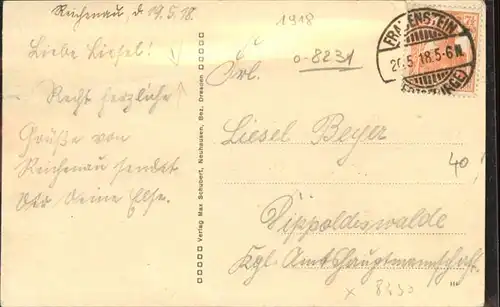 Reichenau, d. 19.5.18.
Liebe Liesel!
Recht herzliche
Grüße von
Reichenau sendet
Dir deine Else.
Verlag Max Schubert, Neuhausen, Bez. Dresden
1918
0-8231
Frl.
Liesel Beyer
Dippoldiswalde
Kgl. Amtshauptmannschaft.
40,
x 8230
FRAUENSTEIN
20.5.18.5-6N.
(ERZGEBIRGE)